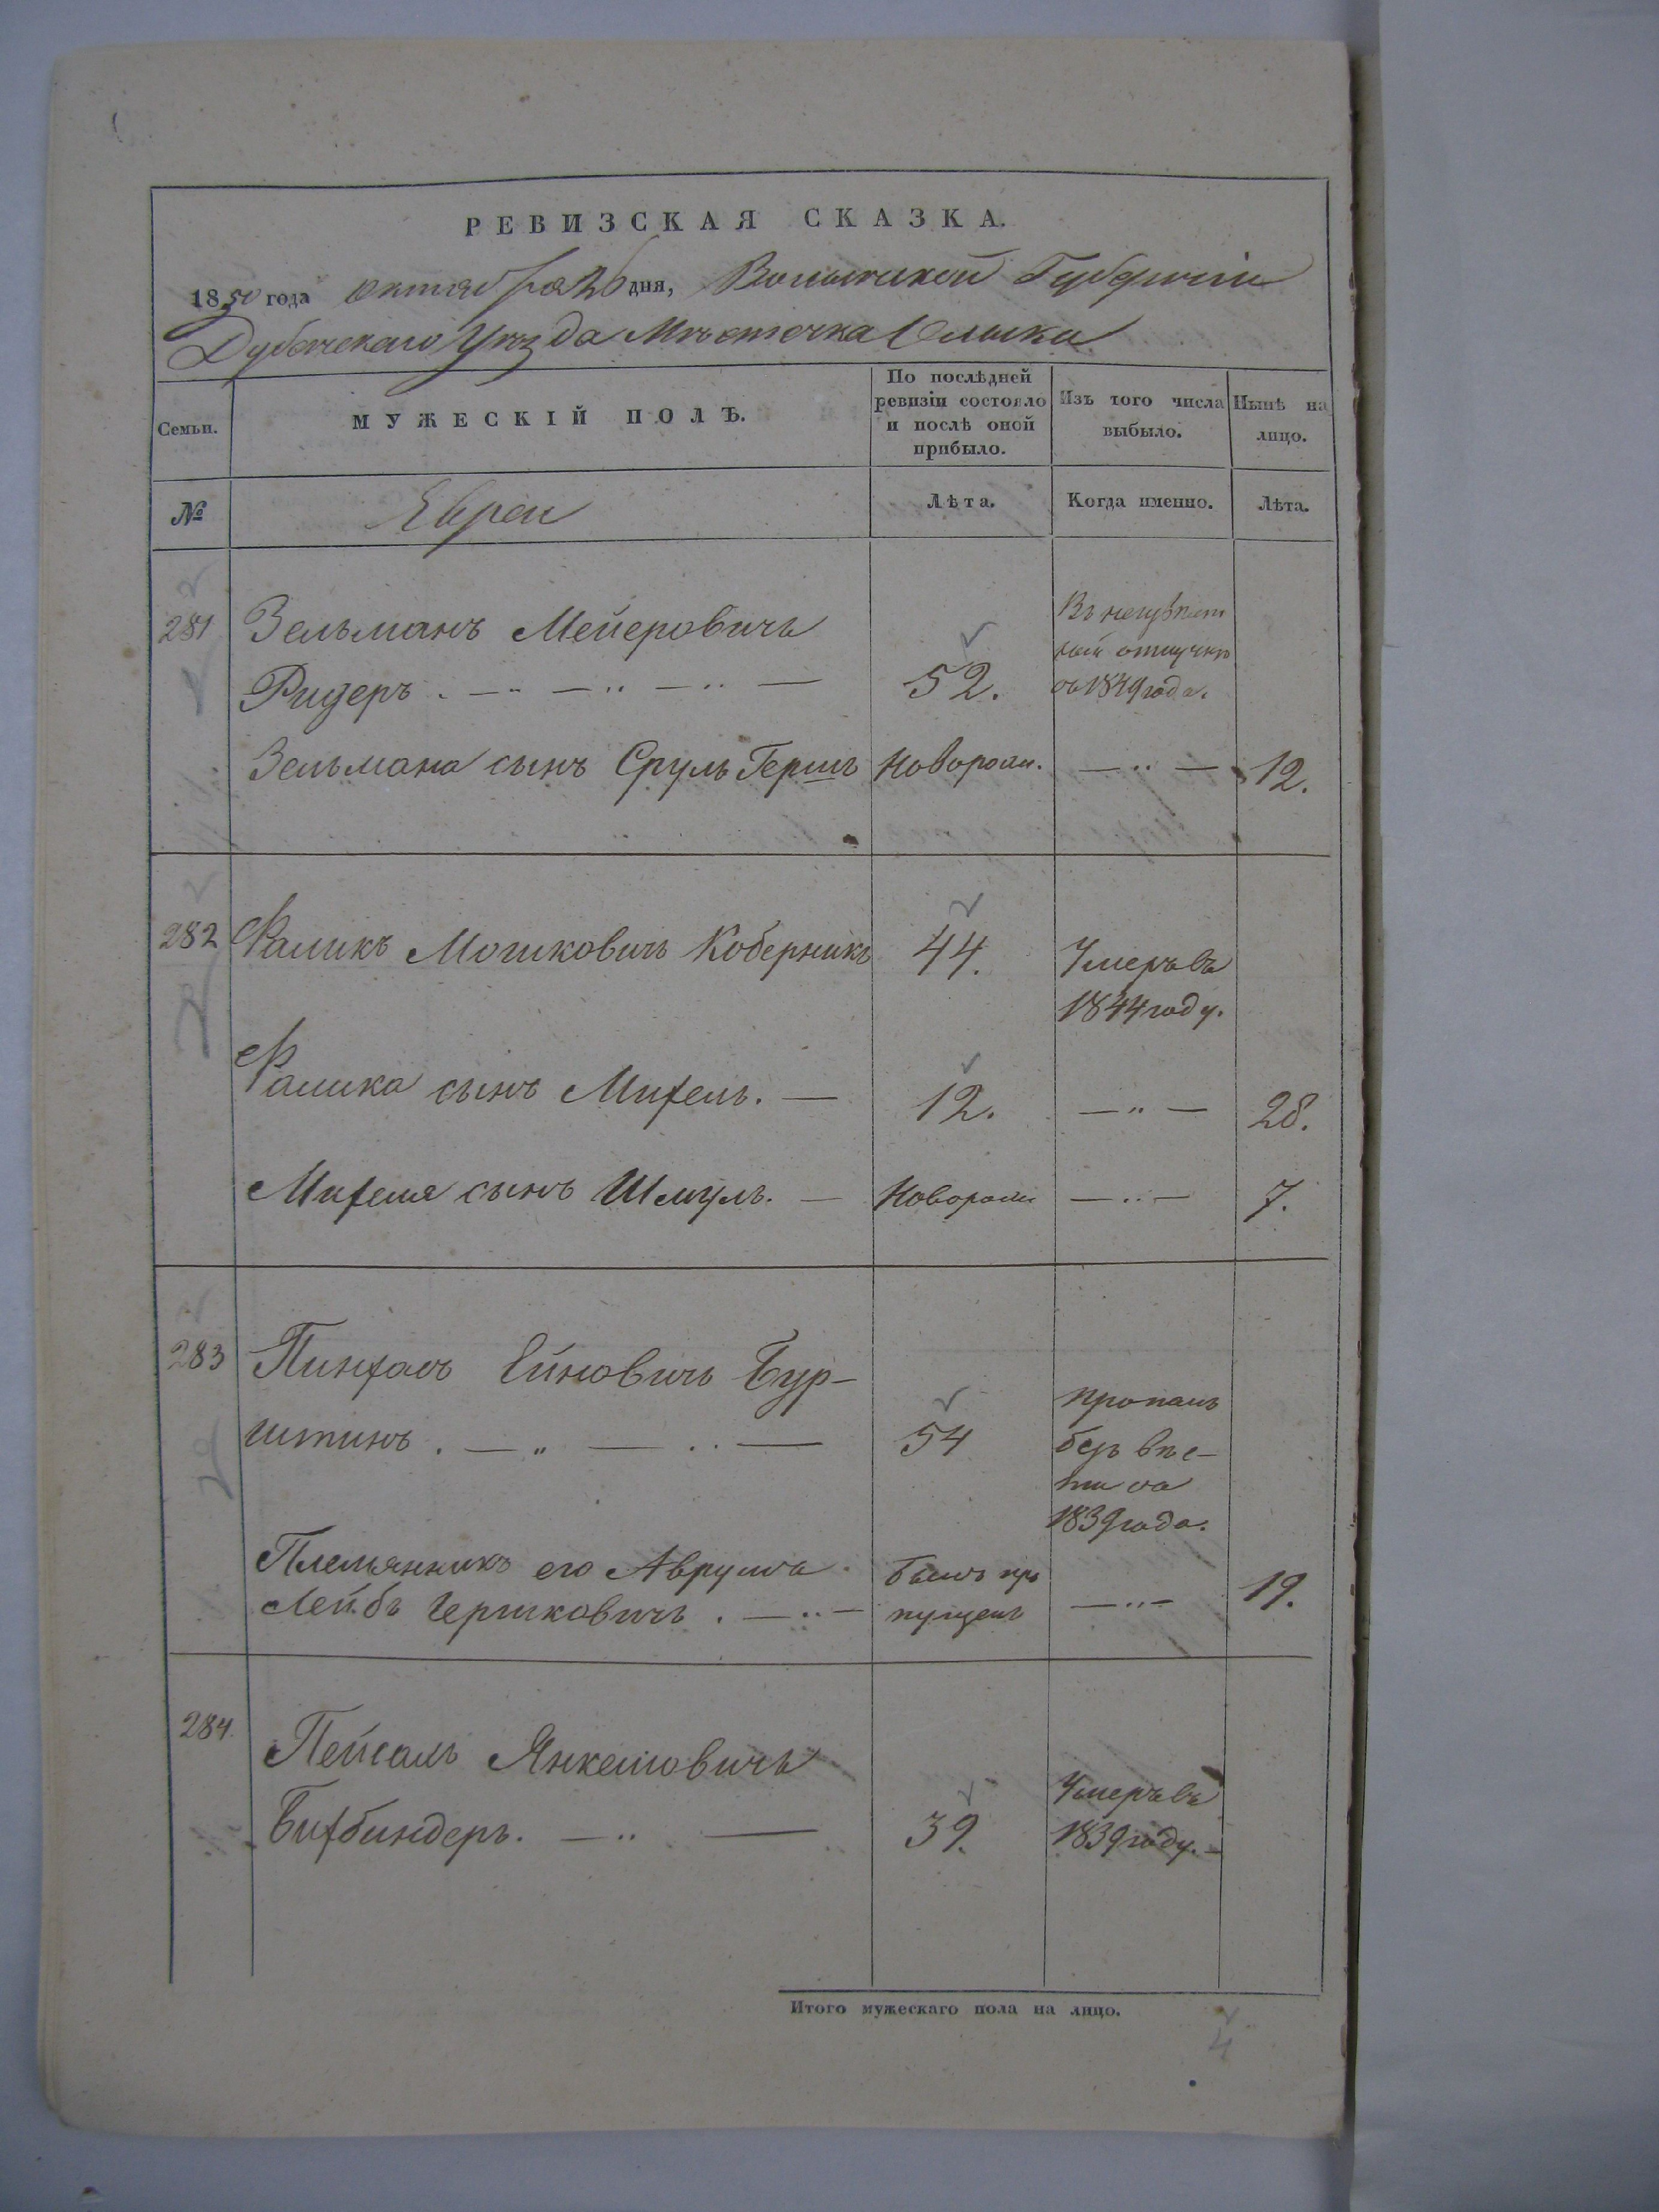 РЕВИЗСКАЯ СКАЗКА.
1850 года октября 26 дня, Волынской Губерніи
Дубенскаго Уѣзда Мѣстечка Олыки
Семьи.
МУЖЕСКІЙ ПОЛЪ.
По послѣдней
ревизіи состояло
и послѣ оной
прибыло.
Изъ того числа
выбыло.
Нынѣ на
лицо.
№
Евреи
Лѣта.
Когда именно.
Лѣта.
281 Зельманъ Мейеровичъ
Ридеръ . — „ — „ — „ — 52.
Въ
отлучкѣ
съ 1849 года.
Зельмана сынъ Сруль Гершъ Новорож. — „ — 12.
282 Фаликъ Мошковичъ Коберникъ 44. Умеръ въ
1844 году.
Фалика сынъ Михель. — 12. — „ — 28.
Михеля сынъ Шмуль. — Новорож. — „ — 7.
283 Пинхасъ Ейновичъ Бур-
штинъ . — „ — „ — 54
пропалъ
безъ вѣс-
ти съ
1839 года.
Племянникъ его Аврумъ былъ про
Лейбъ Гершковичъ . — „ — пущенъ — „ — 19.
284. Пейсахъ Янкелювичъ
Бихбиндеръ. — „ — 39.
Умеръ въ
1839 году. —
Итого мужескаго пола на лицо.
4